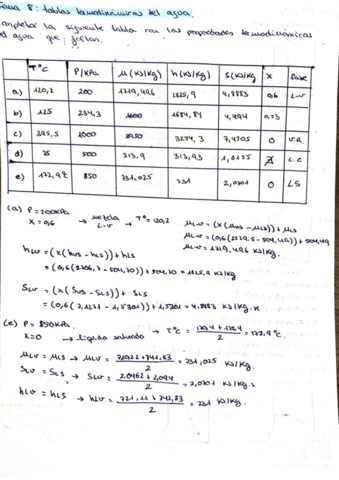 Tema 8: tablas termodinámicas del agua.
Completar la siguiente tabla con las propiedades termodinámicas
del agua que faltan.
T°C P/KPa u(KJ/Kg) h(KJ/Kg) s(KJ/Kg) x fase
a) 120,2 200 1719,496 1825,9 4,8883 0,6 L-V
b) 125 234,3 1600 1684,81 4,494 0,53
c) 395,5 1000 2950 3254,3 7,4505 0 V.R.
d) 75 500 313,9 313,93 1,0155 Z L.C
e) 172,9°C 850 731,025 731 2,0701 0 LS
(a) P = 200KPa
x = 0,6 → mezcla L-V → T° = 120,2
μLV = (x(μVS - μLS)) + μLS
μLV = (0,6(2529,5 - 504,49)) + 504,49
μLV = 1719,496 KJ/Kg
hLV = (x(hVS - hLS)) + hLS
= (0,6(2706,7 - 504,70)) + 504,70 = 1825,9 KJ/Kg
SLV = (x(SVS - SLS)) + SLS
= (0,6(7,1271 - 1,5301)) + 1,5301 = 4,8883 KJ/Kg·K
(e) P = 850KPa.
x=0 → líquido saturado → T°C = = 172,9°C.
2
μLV = μLS → μLV = = 731,025 KJ/Kg
2
SLV = SLS → SLV = 2,0462 + 2,094 = 2,0701 KJ/Kg.
2
hLV = hLS → hLV = 721,11 + 742,83 = 731 KJ/Kg.
2